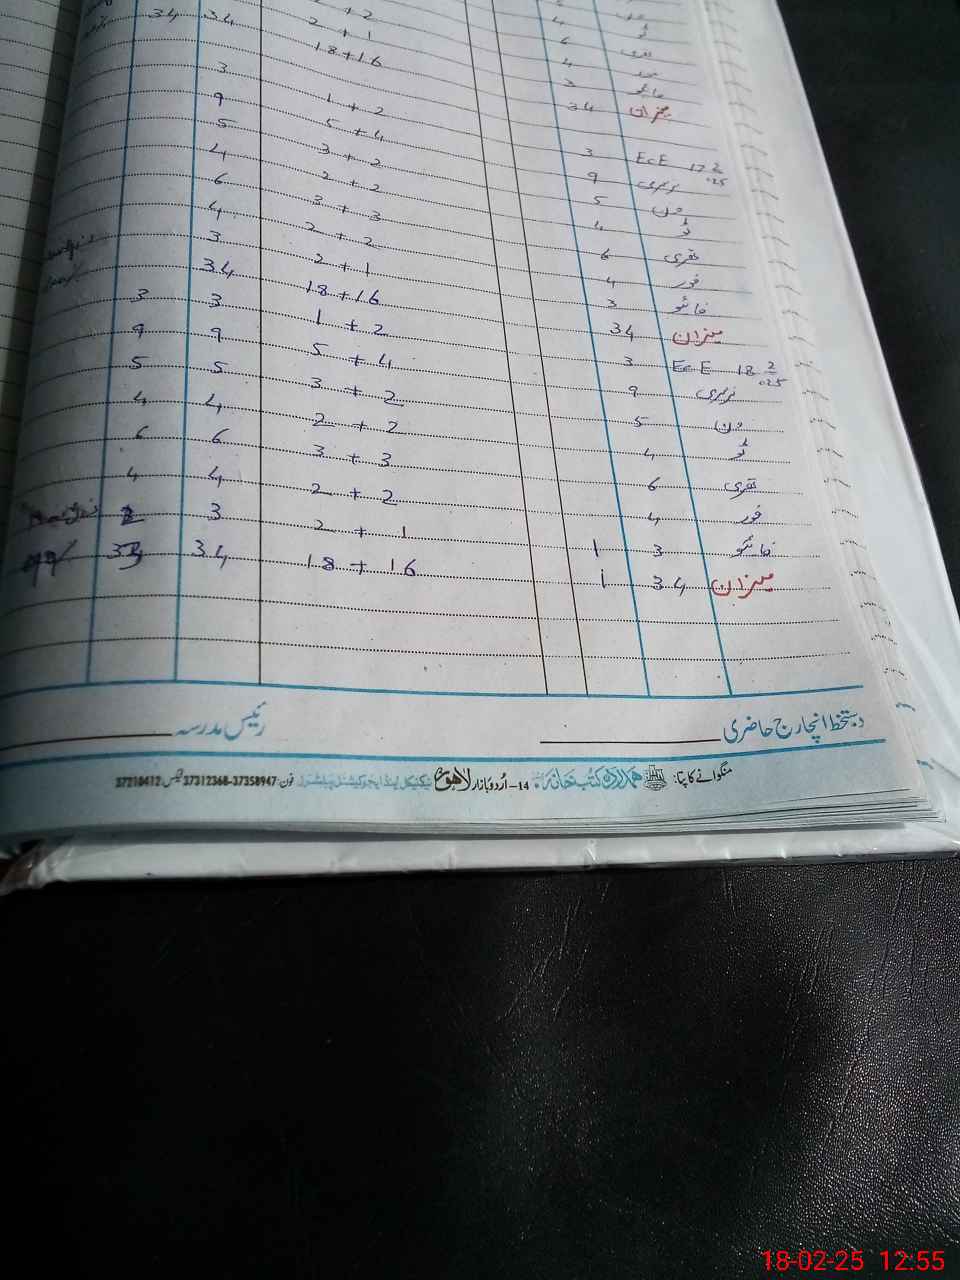 2 + 2
34 34 18+16 34 میزان
3 1 + 2 3 ECE 17 2/025
9 5 + 4 9 نرسری
5 3 + 2 5 ون
4 2 + 2 4 ٹو
6 3 + 3 6 تھری
4 2 + 2 4 فور
3 2 + 1 3 فائیو
34 18+16 34 میزان
3 3 1 + 2 3 ECE 18 2/025
9 9 5 + 4 9 نرسری
5 5 3 + 2 5 ون
4 4 2 + 2 4 ٹو
6 6 3 + 3 6 تھری
4 4 2 + 2 4 فور
3 2 + 1 1 3 فائیو
34 18 + 16 1 34 میزان
دستخط انچارج حاضری رئیس مدرسہ
منگوانے کا پتا: ہمدرد کتب خانہ ٹیکنیکل اینڈ ایجوکیشنل پبلشرز 14-اُردو بازار لاہور فون: 37358947-37312368 فیکس: 37210412
18-02-25 12:55